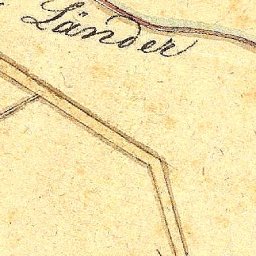 Länder